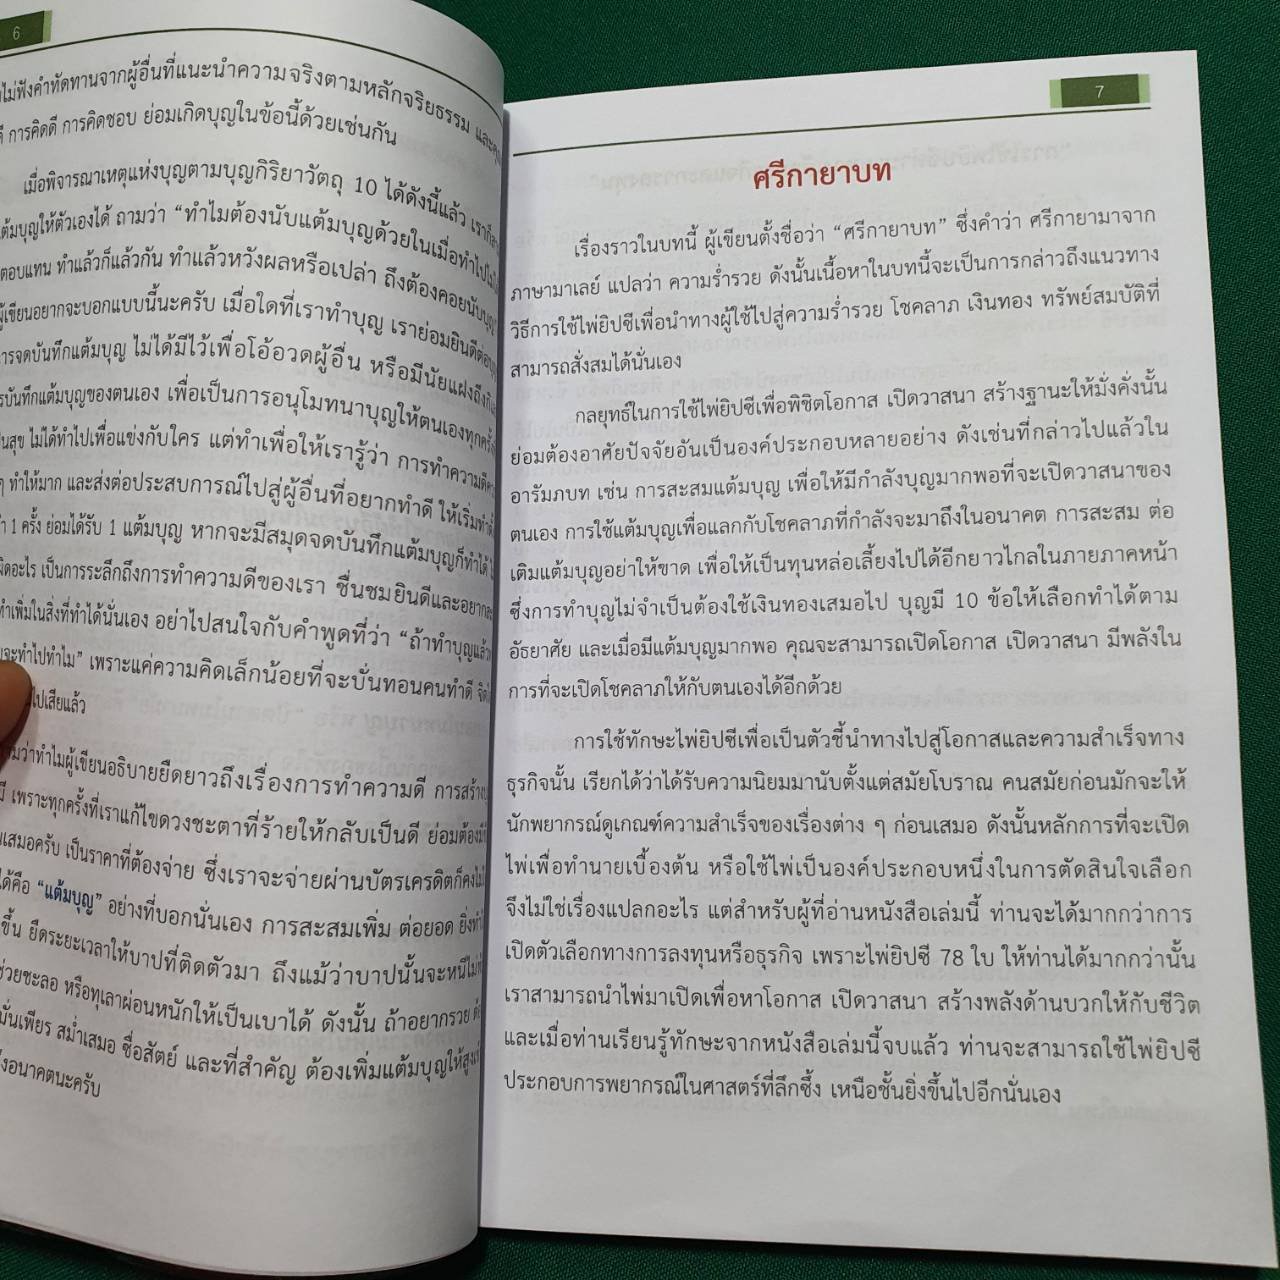 6
ไม่ฟังคำทัดทานจากผู้อื่นที่แนะนำความจริงตามหลักจริยธรรม
การคิดดี การคิดชอบ ย่อมเกิดบุญในข้อนี้ด้วยเช่นกัน
เมื่อพิจารณาเหตุแห่งบุญตามบุญกิริยาวัตถุ 10 ได้ดังนี้แล้ว
แต้มบุญให้ตัวเองได้ ถามว่า “ทำไมต้องนับแต้มบุญด้วยในเมื่อทำไป
ตอบแทน ทำแล้วก็แล้วกัน ทำแล้วหวังผลหรือเปล่า ถึงต้องคอยนับบุญ”
ผู้เขียนอยากจะบอกแบบนี้นะครับ เมื่อใดที่เราทำบุญ เราย่อมยินดีต่อ
การจดบันทึกแต้มบุญ ไม่ได้มีไว้เพื่อโอ้อวดผู้อื่น หรือมีนัยแฝงถึง
บันทึกแต้มบุญของตนเอง เพื่อเป็นการอนุโมทนาบุญให้ตนเองทุกครั้ง
ไม่ได้ทำไปเพื่อแข่งกับใคร แต่ทำเพื่อให้เรารู้ว่า การทำความดี
ๆ ทำให้มาก และส่งต่อประสบการณ์ไปสู่ผู้อื่นที่อยากทำดี ให้เริ่มทำ
1 ครั้ง ย่อมได้รับ 1 แต้มบุญ หากจะมีสมุดจดบันทึกแต้มบุญก็ทำได้
ผิดอะไร เป็นการระลึกถึงการทำความดีของเรา ชื่นชมยินดีและอยาก
ทำเพิ่มในสิ่งที่ทำได้นั่นเอง อย่าไปสนใจกับคำพูดที่ว่า “ถ้าทำบุญแล้ว
จะทำไปทำไม” เพราะแค่ความคิดเล็กน้อยที่จะบั่นทอนคนทำดี
ไปเสียแล้ว
ว่าทำไมผู้เขียนอธิบายยืดยาวถึงเรื่องการทำความดี การสร้าง
เพราะทุกครั้งที่เราแก้ไขดวงชะตาที่ร้ายให้กลับเป็นดี ย่อมต้องมี
เสมอครับ เป็นราคาที่ต้องจ่าย ซึ่งเราจะจ่ายผ่านบัตรเครดิตก็คงไม่
ได้คือ “แต้มบุญ” อย่างที่บอกนั่นเอง การสะสมเพิ่ม ต่อยอด
ขึ้น ยืดระยะเวลาให้บาปที่ติดตัวมา ถึงแม้ว่าบาปนั้นจะหนีไม่
ช่วยชะลอ หรือทุเลาผ่อนหนักให้เป็นเบาได้ ดังนั้น ถ้าอยากรวย
สม่ำเสมอ ซื่อสัตย์ และที่สำคัญ ต้องเพิ่มแต้มบุญให้สูง
อนาคตนะครับ
7
ศรีกายาบท
เรื่องราวในบทนี้ ผู้เขียนตั้งชื่อว่า “ศรีกายาบท” ซึ่งคำว่า ศรีกายามาจาก
ภาษามาเลย์ แปลว่า ความร่ำรวย ดังนั้นเนื้อหาในบทนี้จะเป็นการกล่าวถึงแนวทาง
วิธีการใช้ไพ่ยิปซีเพื่อนำทางผู้ใช้ไปสู่ความร่ำรวย โชคลาภ เงินทอง ทรัพย์สมบัติที่
สามารถสั่งสมได้นั่นเอง
กลยุทธ์ในการใช้ไพ่ยิปซีเพื่อพิชิตโอกาส เปิดวาสนา สร้างฐานะให้มั่งคั่งนั้น
ย่อมต้องอาศัยปัจจัยอันเป็นองค์ประกอบหลายอย่าง ดังเช่นที่กล่าวไปแล้วใน
อารัมภบท เช่น การสะสมแต้มบุญ เพื่อให้มีกำลังบุญมากพอที่จะเปิดวาสนาของ
ตนเอง การใช้แต้มบุญเพื่อแลกกับโชคลาภที่กำลังจะมาถึงในอนาคต การสะสม ต่อ
เติมแต้มบุญอย่าให้ขาด เพื่อให้เป็นทุนหล่อเลี้ยงไปได้อีกยาวไกลในภายภาคหน้า
ซึ่งการทำบุญไม่จำเป็นต้องใช้เงินทองเสมอไป บุญมี 10 ข้อให้เลือกทำได้ตาม
อัธยาศัย และเมื่อมีแต้มบุญมากพอ คุณจะสามารถเปิดโอกาส เปิดวาสนา มีพลังใน
การที่จะเปิดโชคลาภให้กับตนเองได้อีกด้วย
การใช้ทักษะไพ่ยิปซีเพื่อเป็นตัวชี้นำทางไปสู่โอกาสและความสำเร็จทาง
ธุรกิจนั้น เรียกได้ว่าได้รับความนิยมมานับตั้งแต่สมัยโบราณ คนสมัยก่อนมักจะให้
นักพยากรณ์ดูเกณฑ์ความสำเร็จของเรื่องต่าง ๆ ก่อนเสมอ ดังนั้นหลักการที่จะเปิด
ไพ่เพื่อทำนายเบื้องต้น หรือใช้ไพ่เป็นองค์ประกอบหนึ่งในการตัดสินใจเลือก
จึงไม่ใช่เรื่องแปลกอะไร แต่สำหรับผู้ที่อ่านหนังสือเล่มนี้ ท่านจะได้มากกว่าการ
เปิดตัวเลือกทางการลงทุนหรือธุรกิจ เพราะไพ่ยิปซี 78 ใบ ให้ท่านได้มากกว่านั้น
เราสามารถนำไพ่มาเปิดเพื่อหาโอกาส เปิดวาสนา สร้างพลังด้านบวกให้กับชีวิต
และเมื่อท่านเรียนรู้ทักษะจากหนังสือเล่มนี้จบแล้ว ท่านจะสามารถใช้ไพ่ยิปซี
ประกอบการพยากรณ์ในศาสตร์ที่ลึกซึ้ง เหนือชั้นยิ่งขึ้นไปอีกนั่นเอง